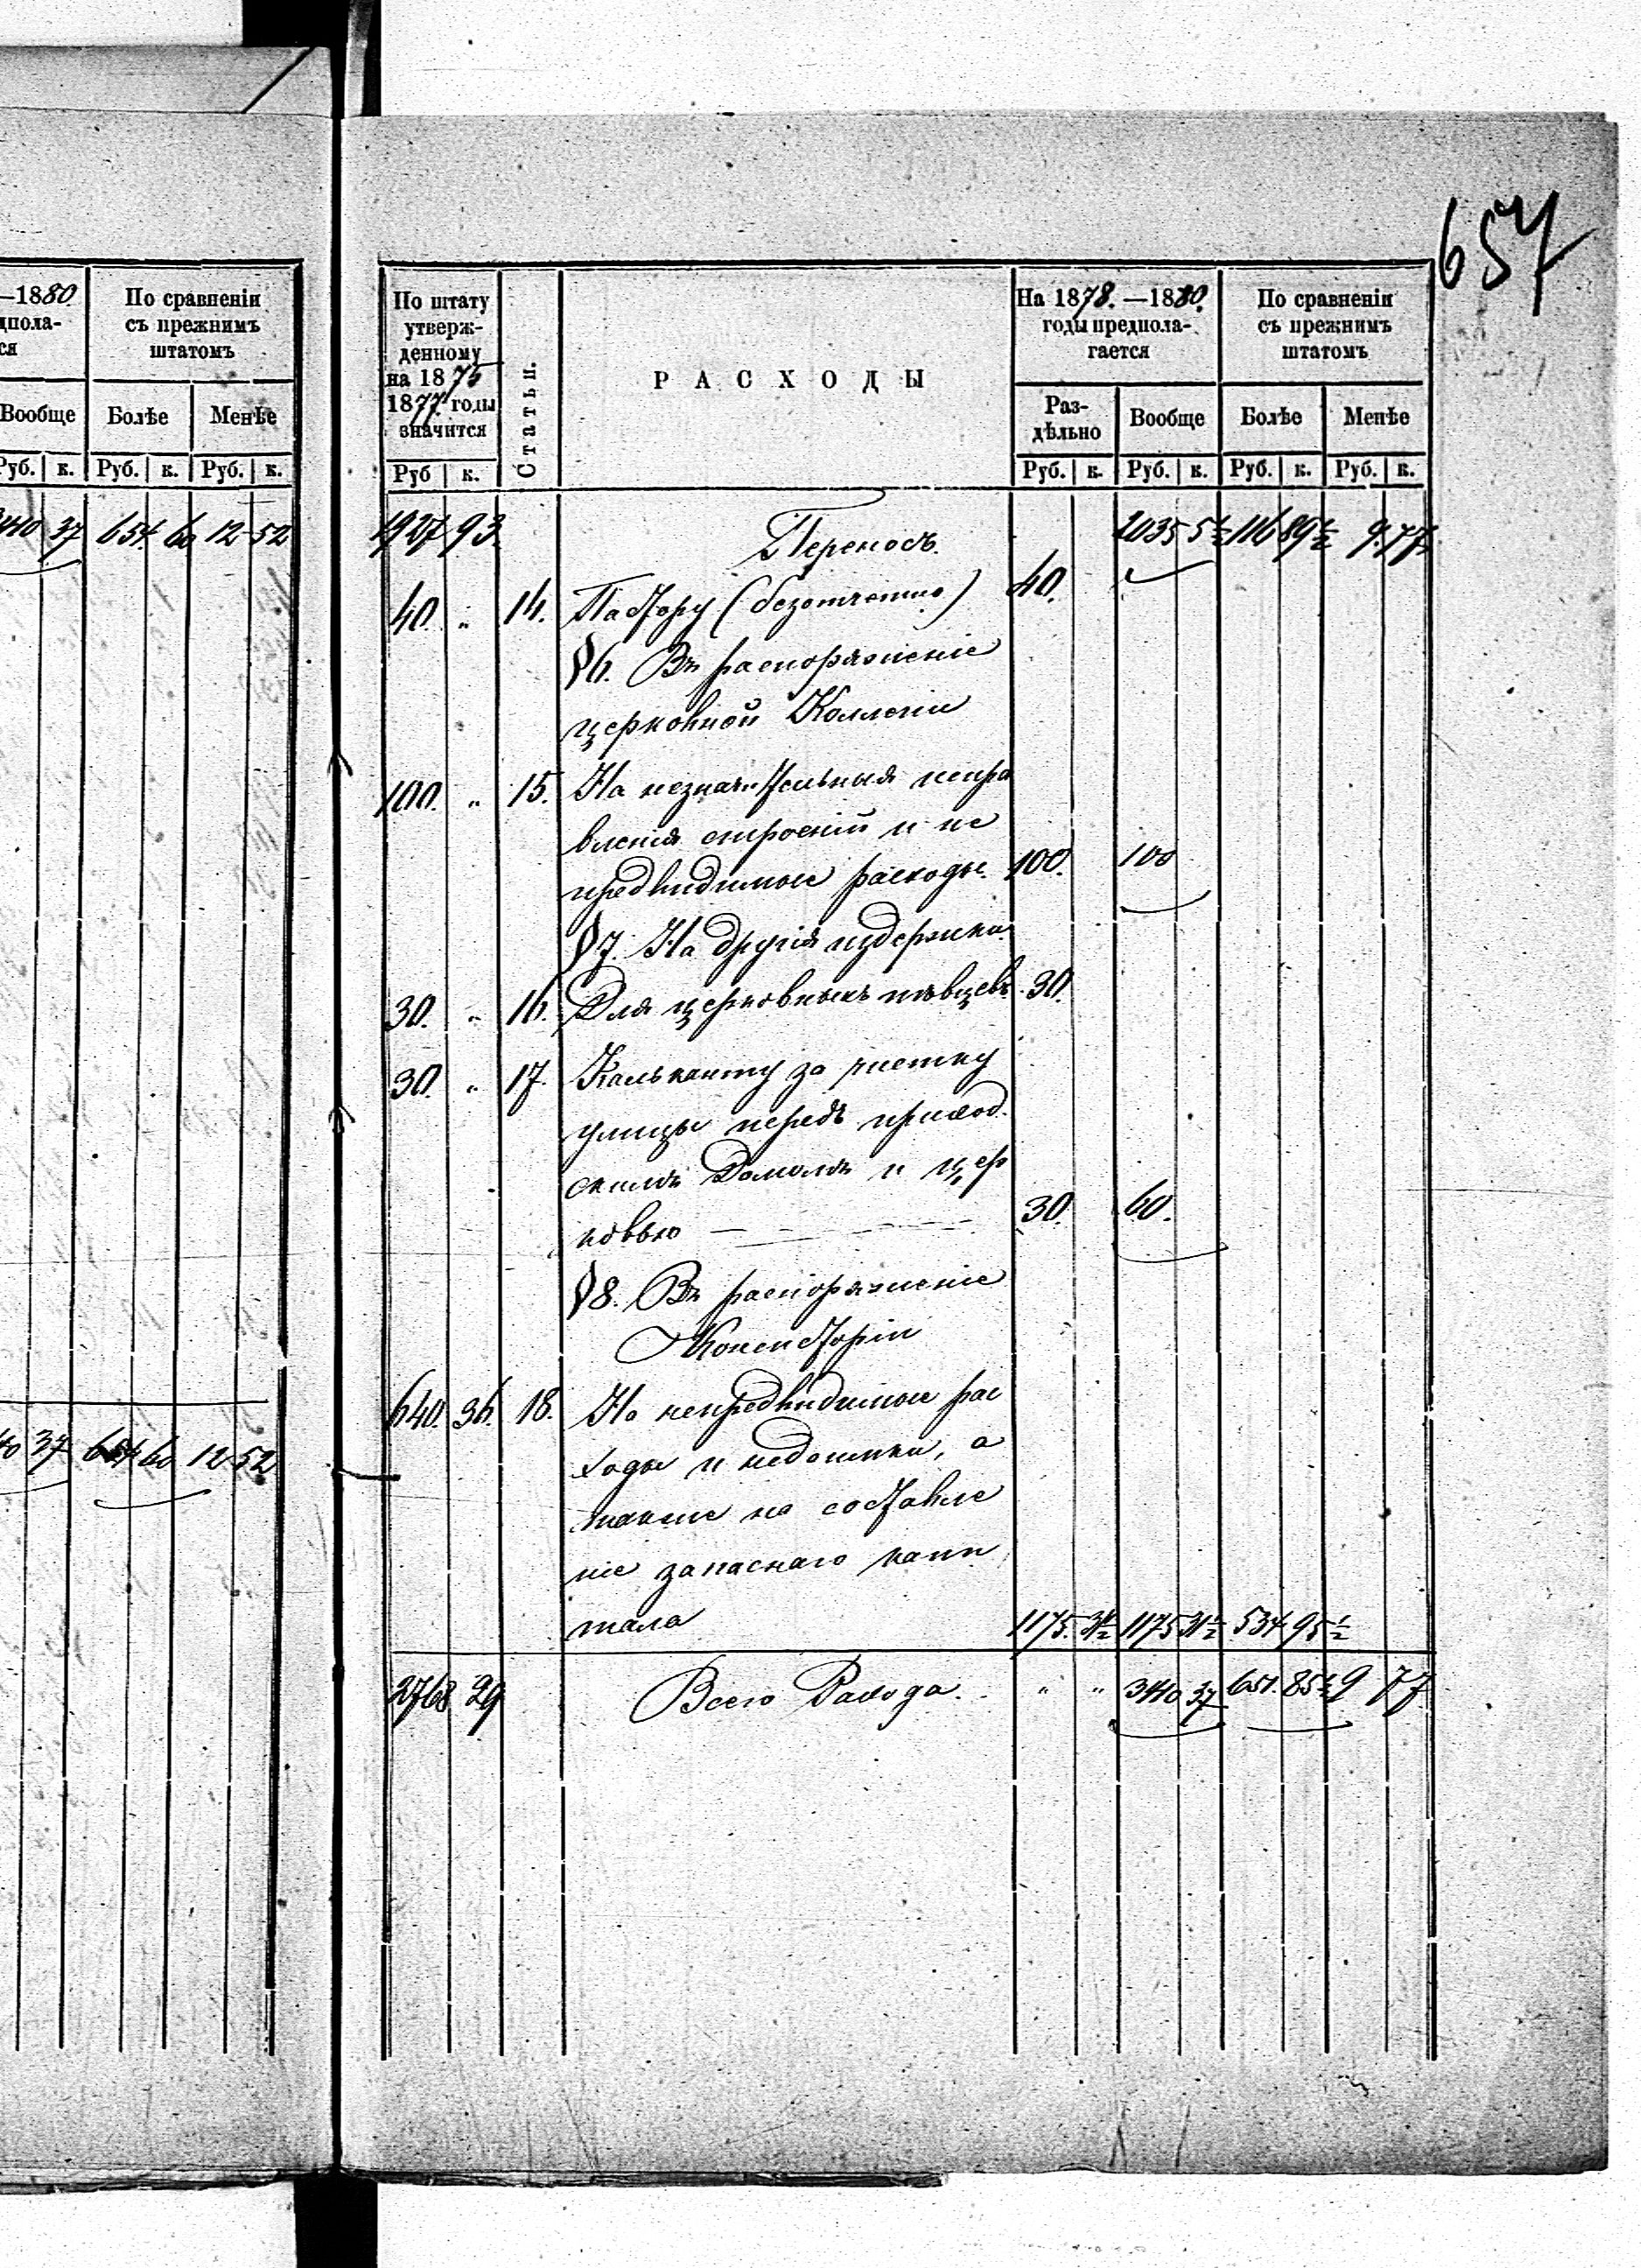 657
—1880
дпола-
ся
По сравненіи
съ прежнимъ
штатомъ
Вообще Болѣе Менѣе
Руб. к. Руб. к. Руб. к.
37 654 60 12 52
40 37 654 60 12 52
По штату
утверж-
денному
на 1875
1877 годы
значится
Руб к.
Статьи.
РАСХОДЫ
На 1878.—1880.
годы предпола-
гается
Раз-
дѣльно
Вообще
Руб. к. Руб. к.
По сравненіи
съ прежнимъ
штатомъ
Болѣе Менѣе
Руб. к. Руб. к.
1927 93. Переносъ. 2035 5½ 116 89½ 9. 77
40. „ 14. Пастору (безотчетно) 40.
§ 6. Въ распоряженіе
церковной Коллегіи
100. „ 15. На незначительныя испра
вленія строеній и не
предвидимые расходы. 100. 100
§ 7. На другія издержки.
30. „ 16. Для церковныхъ пѣвцевъ. 30.
30. „ 17. Кальканту за чистку
улицы передъ приход.
скимъ Домомъ и цер
ковью — — — 30. 60.
§ 8. Въ распоряженіе
Консисторіи
640. 36. 18. На непредвидимые рас
ходы и недоимки, а
также на составле
ніе запаснаго капи
тала 1175. 31½ 1175 31½ 534 95½
2768 29 Всего Расхода. „ „ 3410 37 651. 85½ 9 77